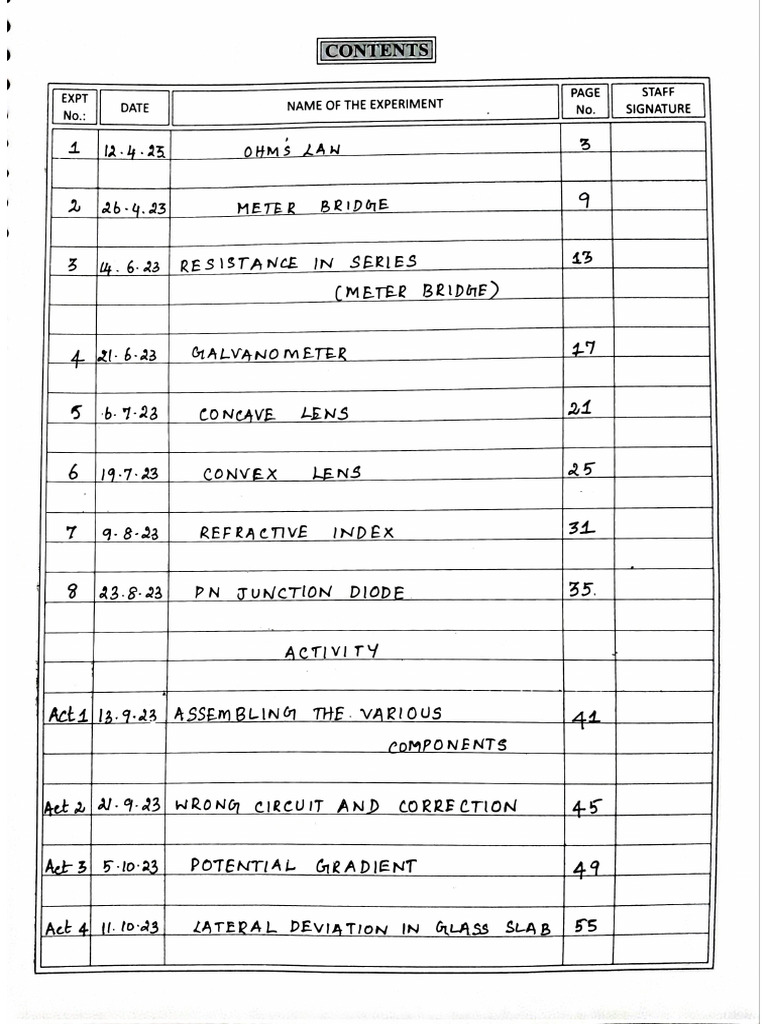 CONTENTS
EXPT No.: DATE NAME OF THE EXPERIMENT PAGE No. STAFF SIGNATURE
1 12.4.23 OHM'S LAW 3
2 26.4.23 METER BRIDGE 9
3 14.6.23 RESISTANCE IN SERIES 13
(METER BRIDGE)
4 21.6.23 GALVANOMETER 17
5 6.7.23 CONCAVE LENS 21
6 19.7.23 CONVEX LENS 25
7 9.8.23 REFRACTIVE INDEX 31
8 23.8.23 PN JUNCTION DIODE 35.
ACTIVITY
Act 1 13.9.23 ASSEMBLING THE VARIOUS 41
COMPONENTS
Act 2 21.9.23 WRONG CIRCUIT AND CORRECTION 45
Act 3 5.10.23 POTENTIAL GRADIENT 49
Act 4 11.10.23 LATERAL DEVIATION IN GLASS SLAB 55